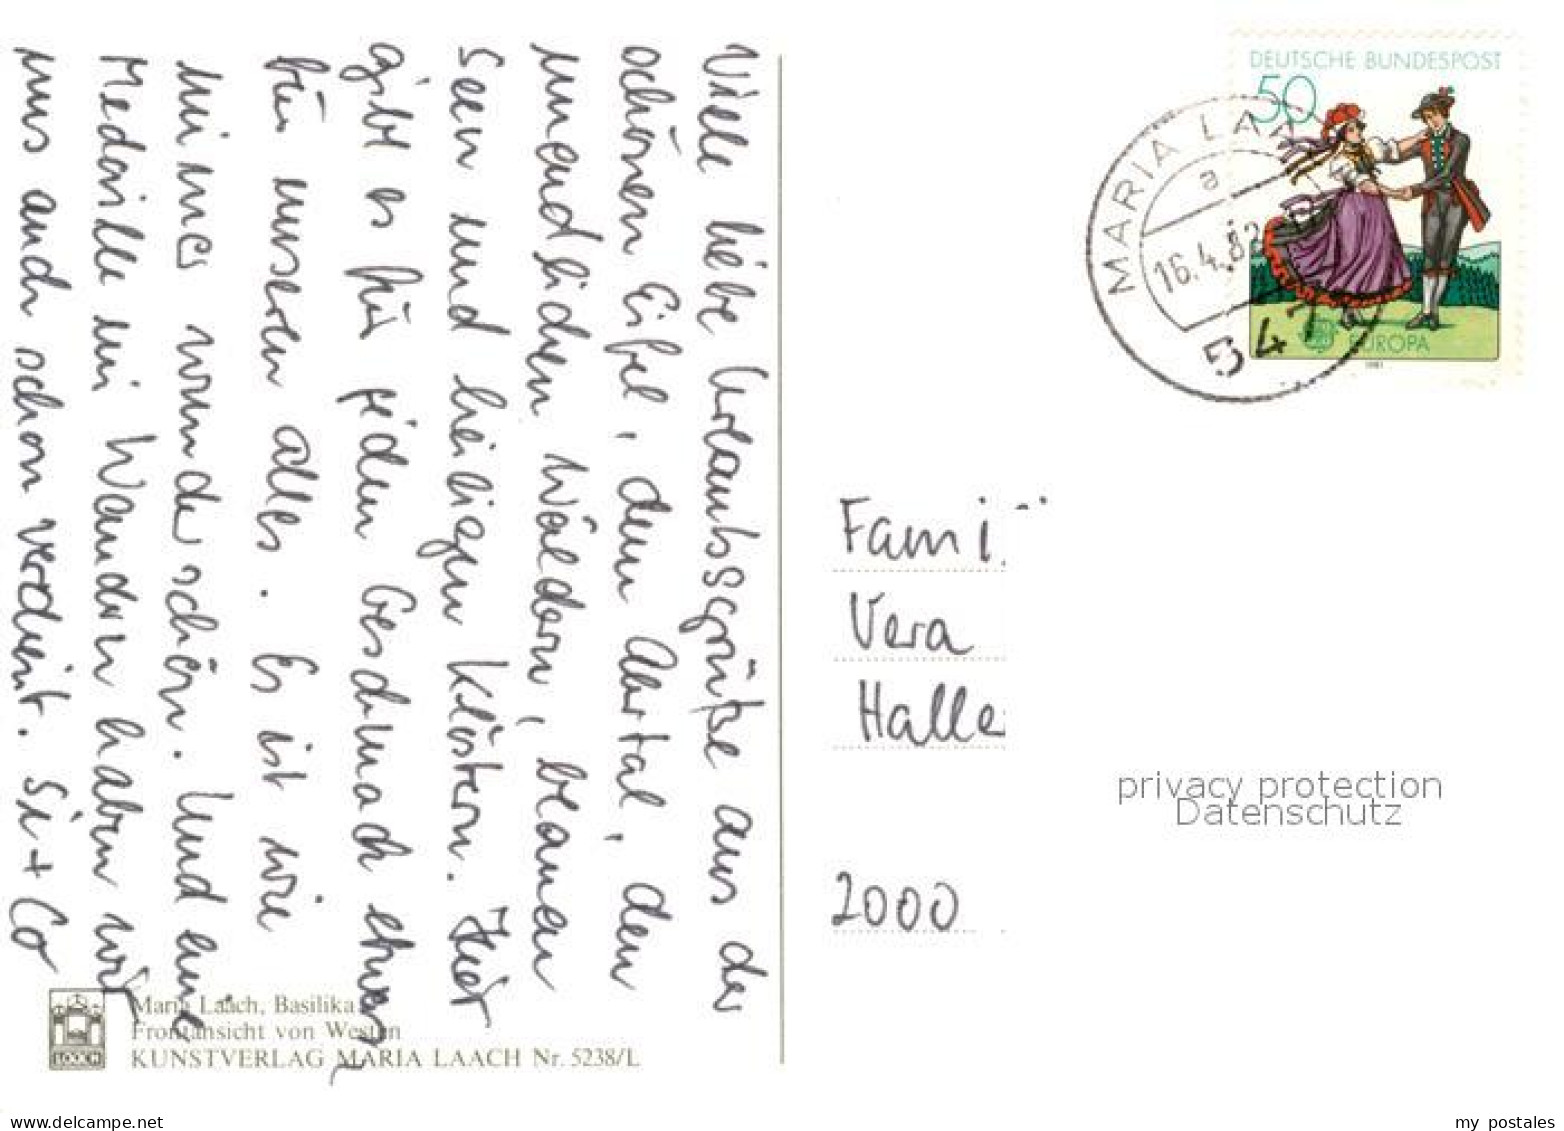 Viele liebe Urlaubsgrüße aus der
schönen Eifel, dem Ahrtal, den
unendlichen Wäldern, blauen
Seen und heiligen Klöstern. Hier
gibt es für jeden Geschmack etwas
für unseren alles. Es ist wie
immer wunderschön. Und eine
Medaille im Wandern haben wir
uns auch schon verdient. Si + Co
Maria Laach, Basilika
Frontansicht von Westen
KUNSTVERLAG MARIA LAACH Nr. 5238/L
LAACH
DEUTSCHE BUNDESPOST
50
EUROPA
1981
MARIA LAA
a
16.4.82
547
Fami
Vera
Halle
2000
privacy protection
Datenschutz
https://www.delcampe.net
my postales